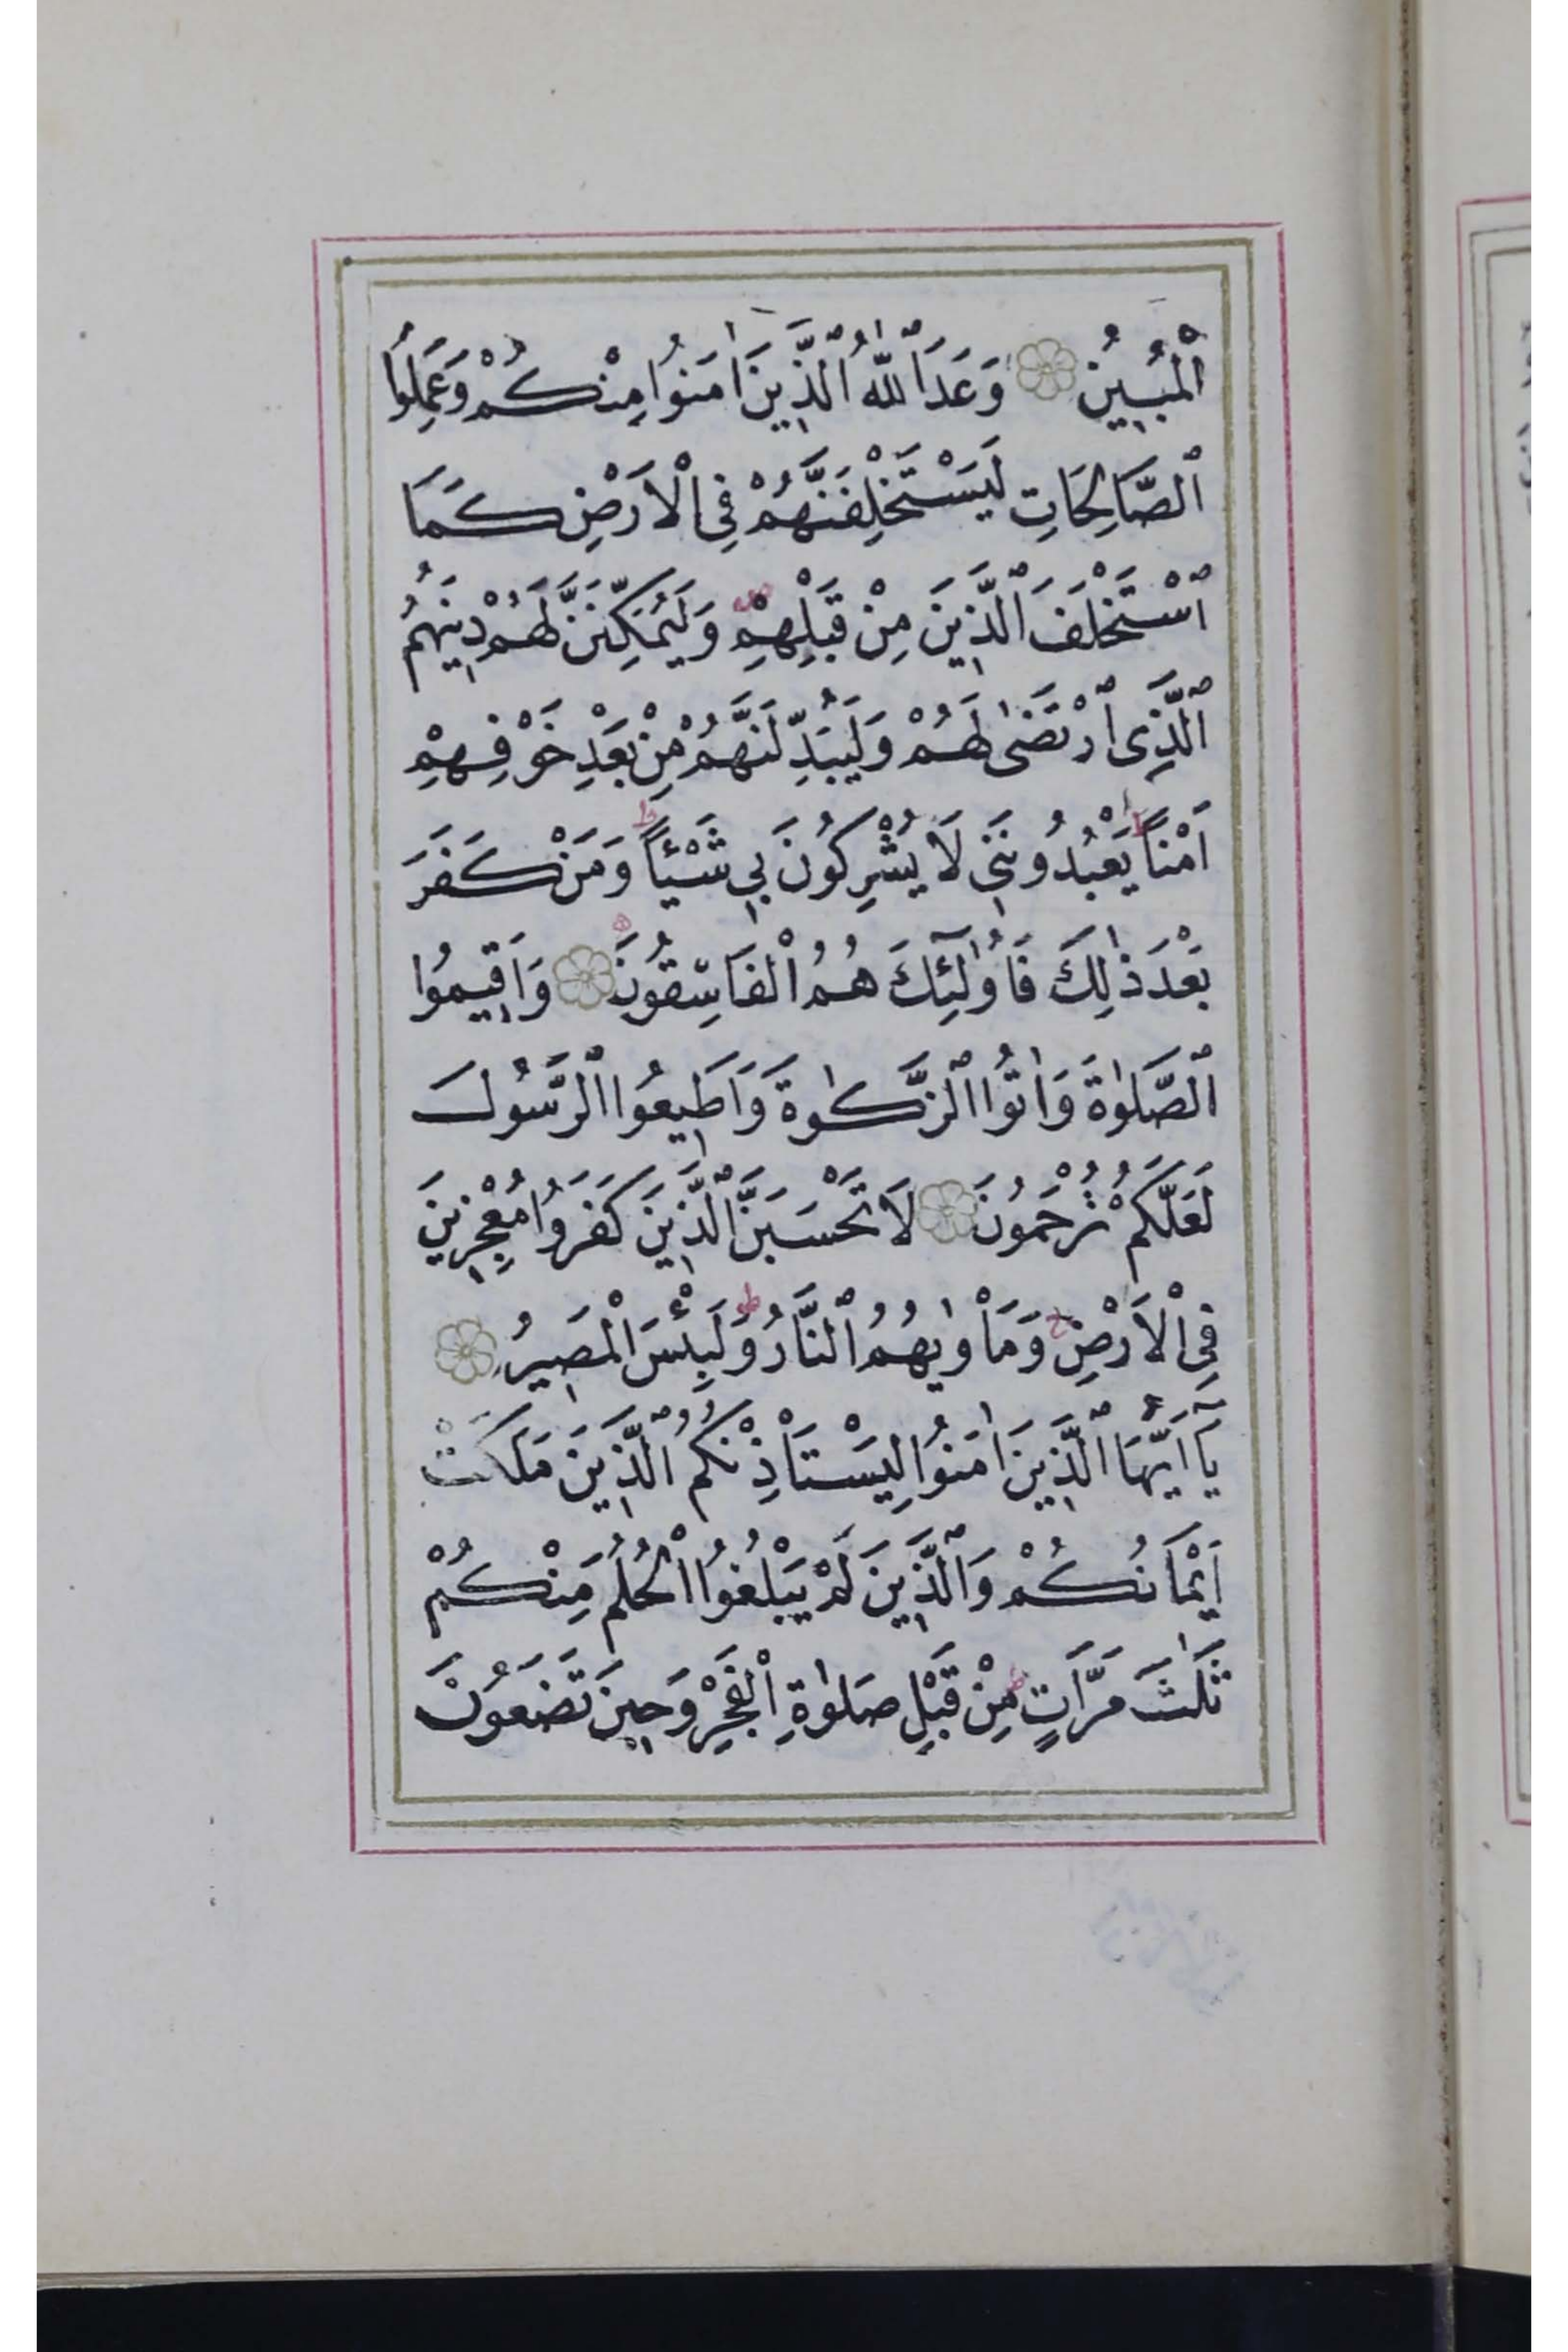 ٱلْمُبِينُ وَعَدَ ٱللّٰهُ ٱلَّذِينَ اٰمَنُوا مِنْكُمْ وَعَمِلُوا
ٱلصَّالِحَاتِ لَيَسْتَخْلِفَنَّهُمْ فِى ٱلْاَرْضِ كَمَا
ٱسْتَخْلَفَ ٱلَّذِينَ مِنْ قَبْلِهِمْ ص وَلَيُمَكِّنَنَّ لَهُمْ دِينَهُمُ
ٱلَّذِى ٱرْتَضٰى لَهُمْ وَلَيُبَدِّلَنَّهُمْ مِنْ بَعْدِ خَوْفِهِمْ
اَمْناً ط يَعْبُدُونَنِى لَا يُشْرِكُونَ بِى شَيْئاً ط وَمَنْ كَفَرَ
بَعْدَ ذٰلِكَ فَاُو۬لٰٓئِكَ هُمُ ٱلْفَاسِقُونَ وَاَقِيمُوا
ٱلصَّلٰوةَ وَاٰتُوا ٱلزَّكٰوةَ وَاَطِيعُوا ٱلرَّسُولَ
لَعَلَّكُمْ تُرْحَمُونَ لَا تَحْسَبَنَّ ٱلَّذِينَ كَفَرُوا مُعْجِزِينَ
فِى ٱلْاَرْضِ ج وَمَأْوٰيهُمُ ٱلنَّارُ ط وَلَبِئْسَ ٱلْمَصِيرُ
يَآ اَيُّهَا ٱلَّذِينَ اٰمَنُوا لِيَسْتَاْذِنْكُمُ ٱلَّذِينَ مَلَكَتْ
اَيْمَانُكُمْ وَٱلَّذِينَ لَمْ يَبْلُغُوا ٱلْحُلُمَ مِنْكُمْ
ثَلٰثَ مَرَّاتٍ ط مِنْ قَبْلِ صَلٰوةِ ٱلْفَجْرِ وَحِينَ تَضَعُونَ